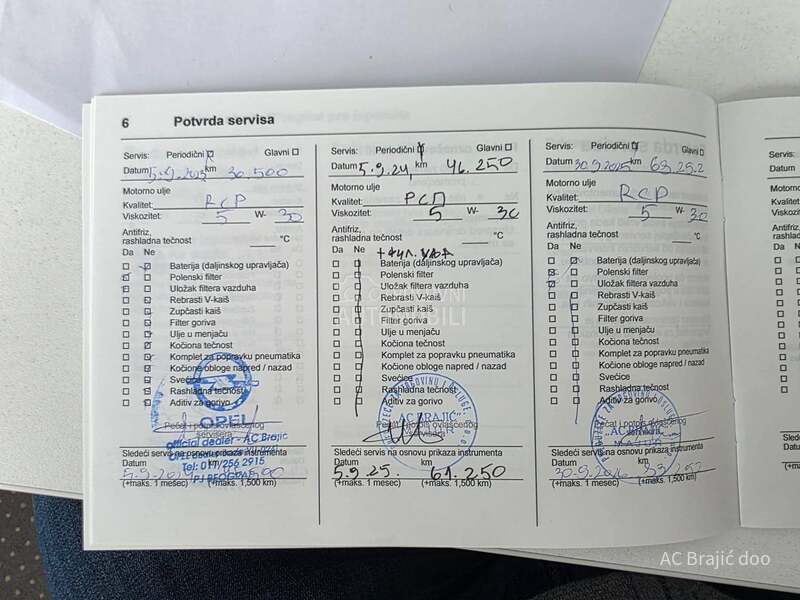 6 Potvrda servisa
Servis: Periodični Glavni
Datum 5.9.2023 km 30.500
Motorno ulje
Kvalitet: RCP
Viskozitet: 5 W- 30
Antifriz,
rashladna tečnost °C
Da Ne
Baterija (daljinskog upravljača)
Polenski filter
Uložak filtera vazduha
Rebrasti V-kaiš
Zupčasti kaiš
Filter goriva
Ulje u menjaču
Kočiona tečnost
Komplet za popravku pneumatika
Kočione obloge napred / nazad
Svećice
Rashladna tečnost
Aditiv za gorivo
Pečat i potpis ovlašćenog
servisera
OPEL
official dealer - AC Brajic
Tel: 011/256 2915
PJ BEOGRAD
Sledeći servis na osnovu prikaza instrumenta
Datum km
5.9.2024
(+maks. 1 mesec) (+maks. 1,500 km)
Servis: Periodični Glavni
Datum 5.9.24, km 46.250
Motorno ulje
Kvalitet: РСП
Viskozitet: 5 W- 30
Antifriz,
rashladna tečnost °C
Da Ne
Baterija (daljinskog upravljača)
Polenski filter
Uložak filtera vazduha
Rebrasti V-kaiš
Zupčasti kaiš
Filter goriva
Ulje u menjaču
Kočiona tečnost
Komplet za popravku pneumatika
Kočione obloge napred / nazad
Svećice
Rashladna tečnost
Aditiv za gorivo
Pečat i potpis ovlašćenog
servisera
"AC BRAJIĆ"
Sledeći servis na osnovu prikaza instrumenta
Datum km
5.9.25. 61.250
(+maks. 1 mesec) (+maks. 1,500 km)
Servis: Periodični Glavni
Datum 30.9.2025 km 63.252
Motorno ulje
Kvalitet: RCP
Viskozitet: 5 W- 30
Antifriz,
rashladna tečnost °C
Da Ne
Baterija (daljinskog upravljača)
Polenski filter
Uložak filtera vazduha
Rebrasti V-kaiš
Zupčasti kaiš
Filter goriva
Ulje u menjaču
Kočiona tečnost
Komplet za popravku pneumatika
Kočione obloge napred / nazad
Svećice
Rashladna tečnost
Aditiv za gorivo
Pečat i potpis ovlašćenog
"AC BRAJIĆ"
Sledeći servis na osnovu prikaza instrumenta
Datum km
30.9.2026
(+maks. 1 mesec) (+maks. 1,500 km)
AC Brajić doo